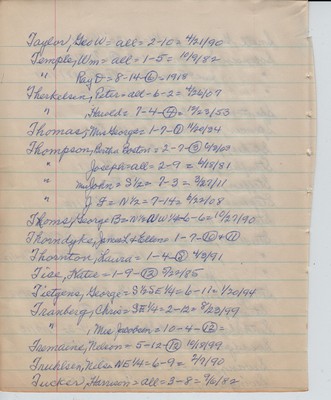 Taylor, Geo W = all = 2-10 = 4/21/90
Temple, Wm = all = 1-5 = 10/9/82
" Ray D = 8-14-⑥ = 1918
Therkelsen, Peter = all - 6-2 = 4/26/07
" Harold = 7-4-④ = 10/23/53
Thomas, Mrs George = 1-7-① 11/20/24
Thompson, Bertha Boston = 2-7-③ 4/3/03
" Joseph = all = 2-9 = 6/18/81
" Mrs John = S1/2 = 7-3 = 3/27/11
" J F = N1/2 = 7-14 = 5/23/08
Thoms, George B = N1/2 NW1/4 - 6-6 = 10/27/90
Thorndyke, James L & Ellen = 1-7-⑩ & ⑪
Thornton, Laura = 1-4-③ 4/3/91
Tise, Katie = 1-9-⑫ 9/22/85
Tietgens, George = S1/2 SE1/4 = 6-11 = 1/20/94
Tranberg, Chris = SE1/4 = 2-12 = 8/23/99
" , Mrs Jacobsen = 10-4-⑫ =
Tremaine, Nelson = 5-12-⑫ 10/18/99
Truhlsen, Nels = NE1/4 = 6-9 = 2/7/90
Tucker, Harrison = all = 3-8 = 9/6/82